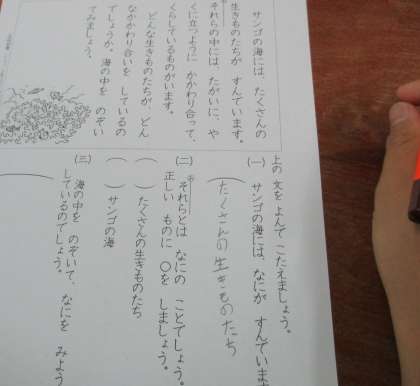 サンゴの海には、たくさんの
生きものたちが すんでいます。
それらの中には、たがいに、や
くに立つように かかわり合って、
くらしているものがいます。
どんな生きものたちが、どん
なかかわり合いを しているの
でしょうか。海の中を のぞい
てみましょう。
上の 文を よんで こたえましょう。
(一) サンゴの海には、なにが すんでいます
たくさんの生きものたち
(二) それらとは なにの ことでしょう。
正しい ものに ○を しましょう。
( ) たくさんの生きものたち
( ) サンゴの海
(三) 海の中を のぞいて、なにを みよう
しているのでしょう。